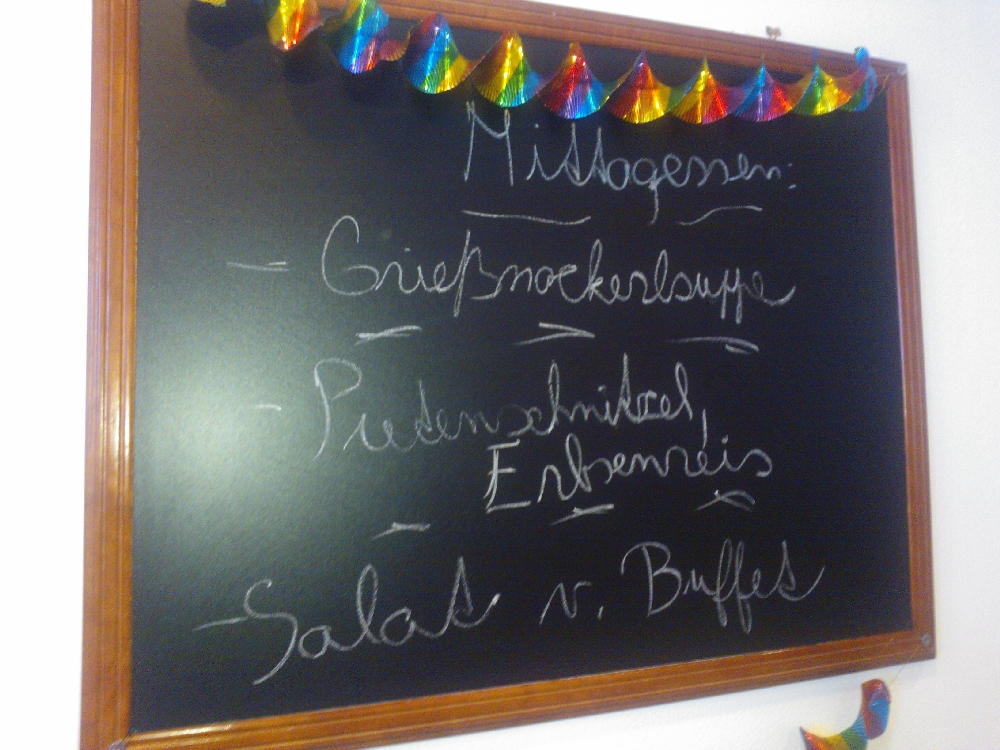 Mittagessen:
- Grießnockerlsuppe
- Putenschnitzel,
Erbsenreis
- Salat v. Buffet